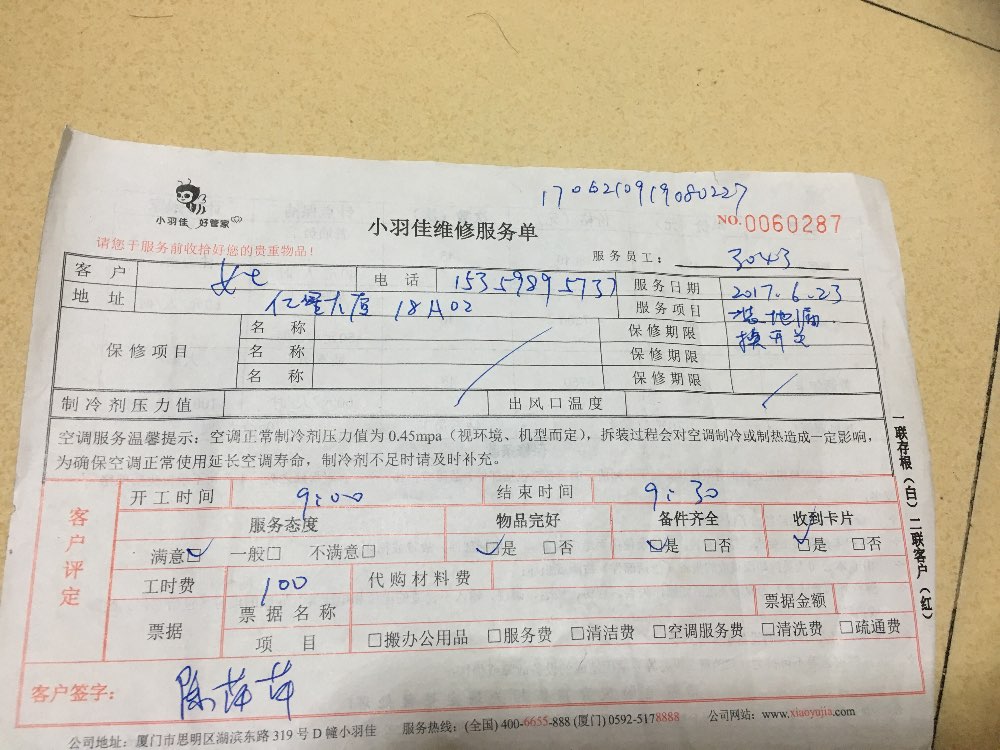 1705210919080227
小羽佳 好管家
小羽佳维修服务单
NO.0060287
请您于服务前收拾好您的贵重物品！
服务员工： 3043
客户 女士 电话 15359895737 服务日期 2017.6.23
地址 亿宝大厦 18A02 服务项目 装地漏
换开关
保修项目 名称 保修期限
名称 保修期限
名称 保修期限
制冷剂压力值 出风口温度
空调服务温馨提示：空调正常制冷剂压力值为 0.45mpa（视环境、机型而定），拆装过程会对空调制冷或制热造成一定影响，
为确保空调正常使用延长空调寿命，制冷剂不足时请及时补充。
一联存根（白）二联客户（红）
客户评定
开工时间 9:00 结束时间 9:30
服务态度 物品完好 备件齐全 收到卡片
满意☑ 一般□ 不满意□ ☑是 □否 ☑是 □否 ☑是 □否
工时费 100 代购材料费
票据 票据名称 票据金额
项目 □搬办公用品 □服务费 □清洁费 □空调服务费 □清洗费 □疏通费
客户签字： 陈萍萍
公司地址：厦门市思明区湖滨东路 319 号 D 幢小羽佳 服务热线：(全国) 400-6655-888 (厦门) 0592-5178888 公司网站：www.xiaoyujia.com